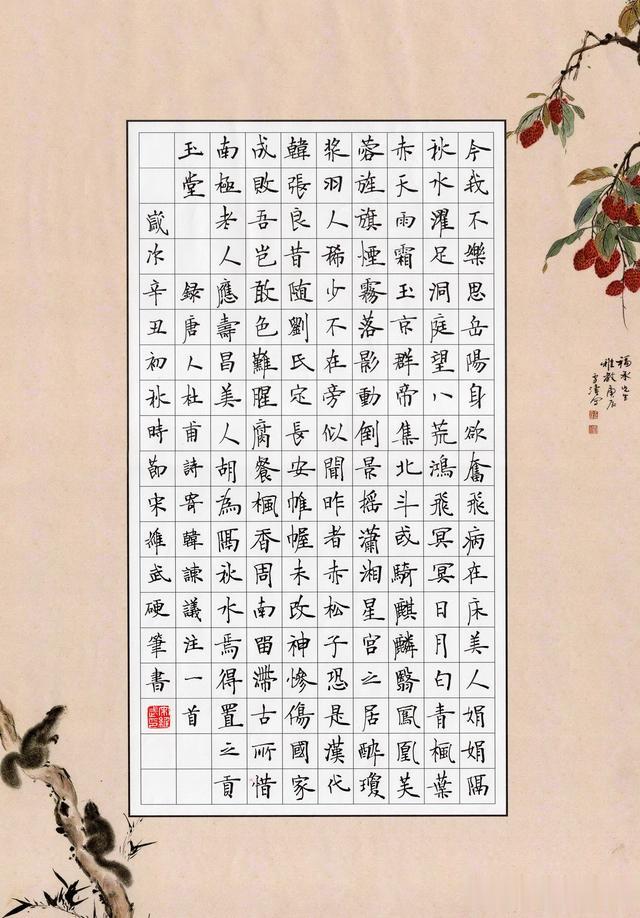 今我不樂思岳陽身欲奮飛病在床美人娟娟隔
秋水濯足洞庭望八荒鴻飛冥冥日月白青楓葉
赤天雨霜玉京群帝集北斗或騎麒麟翳鳳凰芙
蓉旌旗煙霧落影動倒景摇瀟湘星宮之居醉瓊
浆羽人稀少不在旁似聞昨者赤松子恐是漢代
韓張良昔随劉氏定長安帷幄未改神慘傷國家
成敗吾豈敢色難腥腐餐楓香周南留滯古所惜
南極老人應壽昌美人胡為隔秋水焉得置之貢
玉堂 録唐人杜甫詩寄韓諫議注一首
歲次辛丑初秋時節宋維武硬筆書